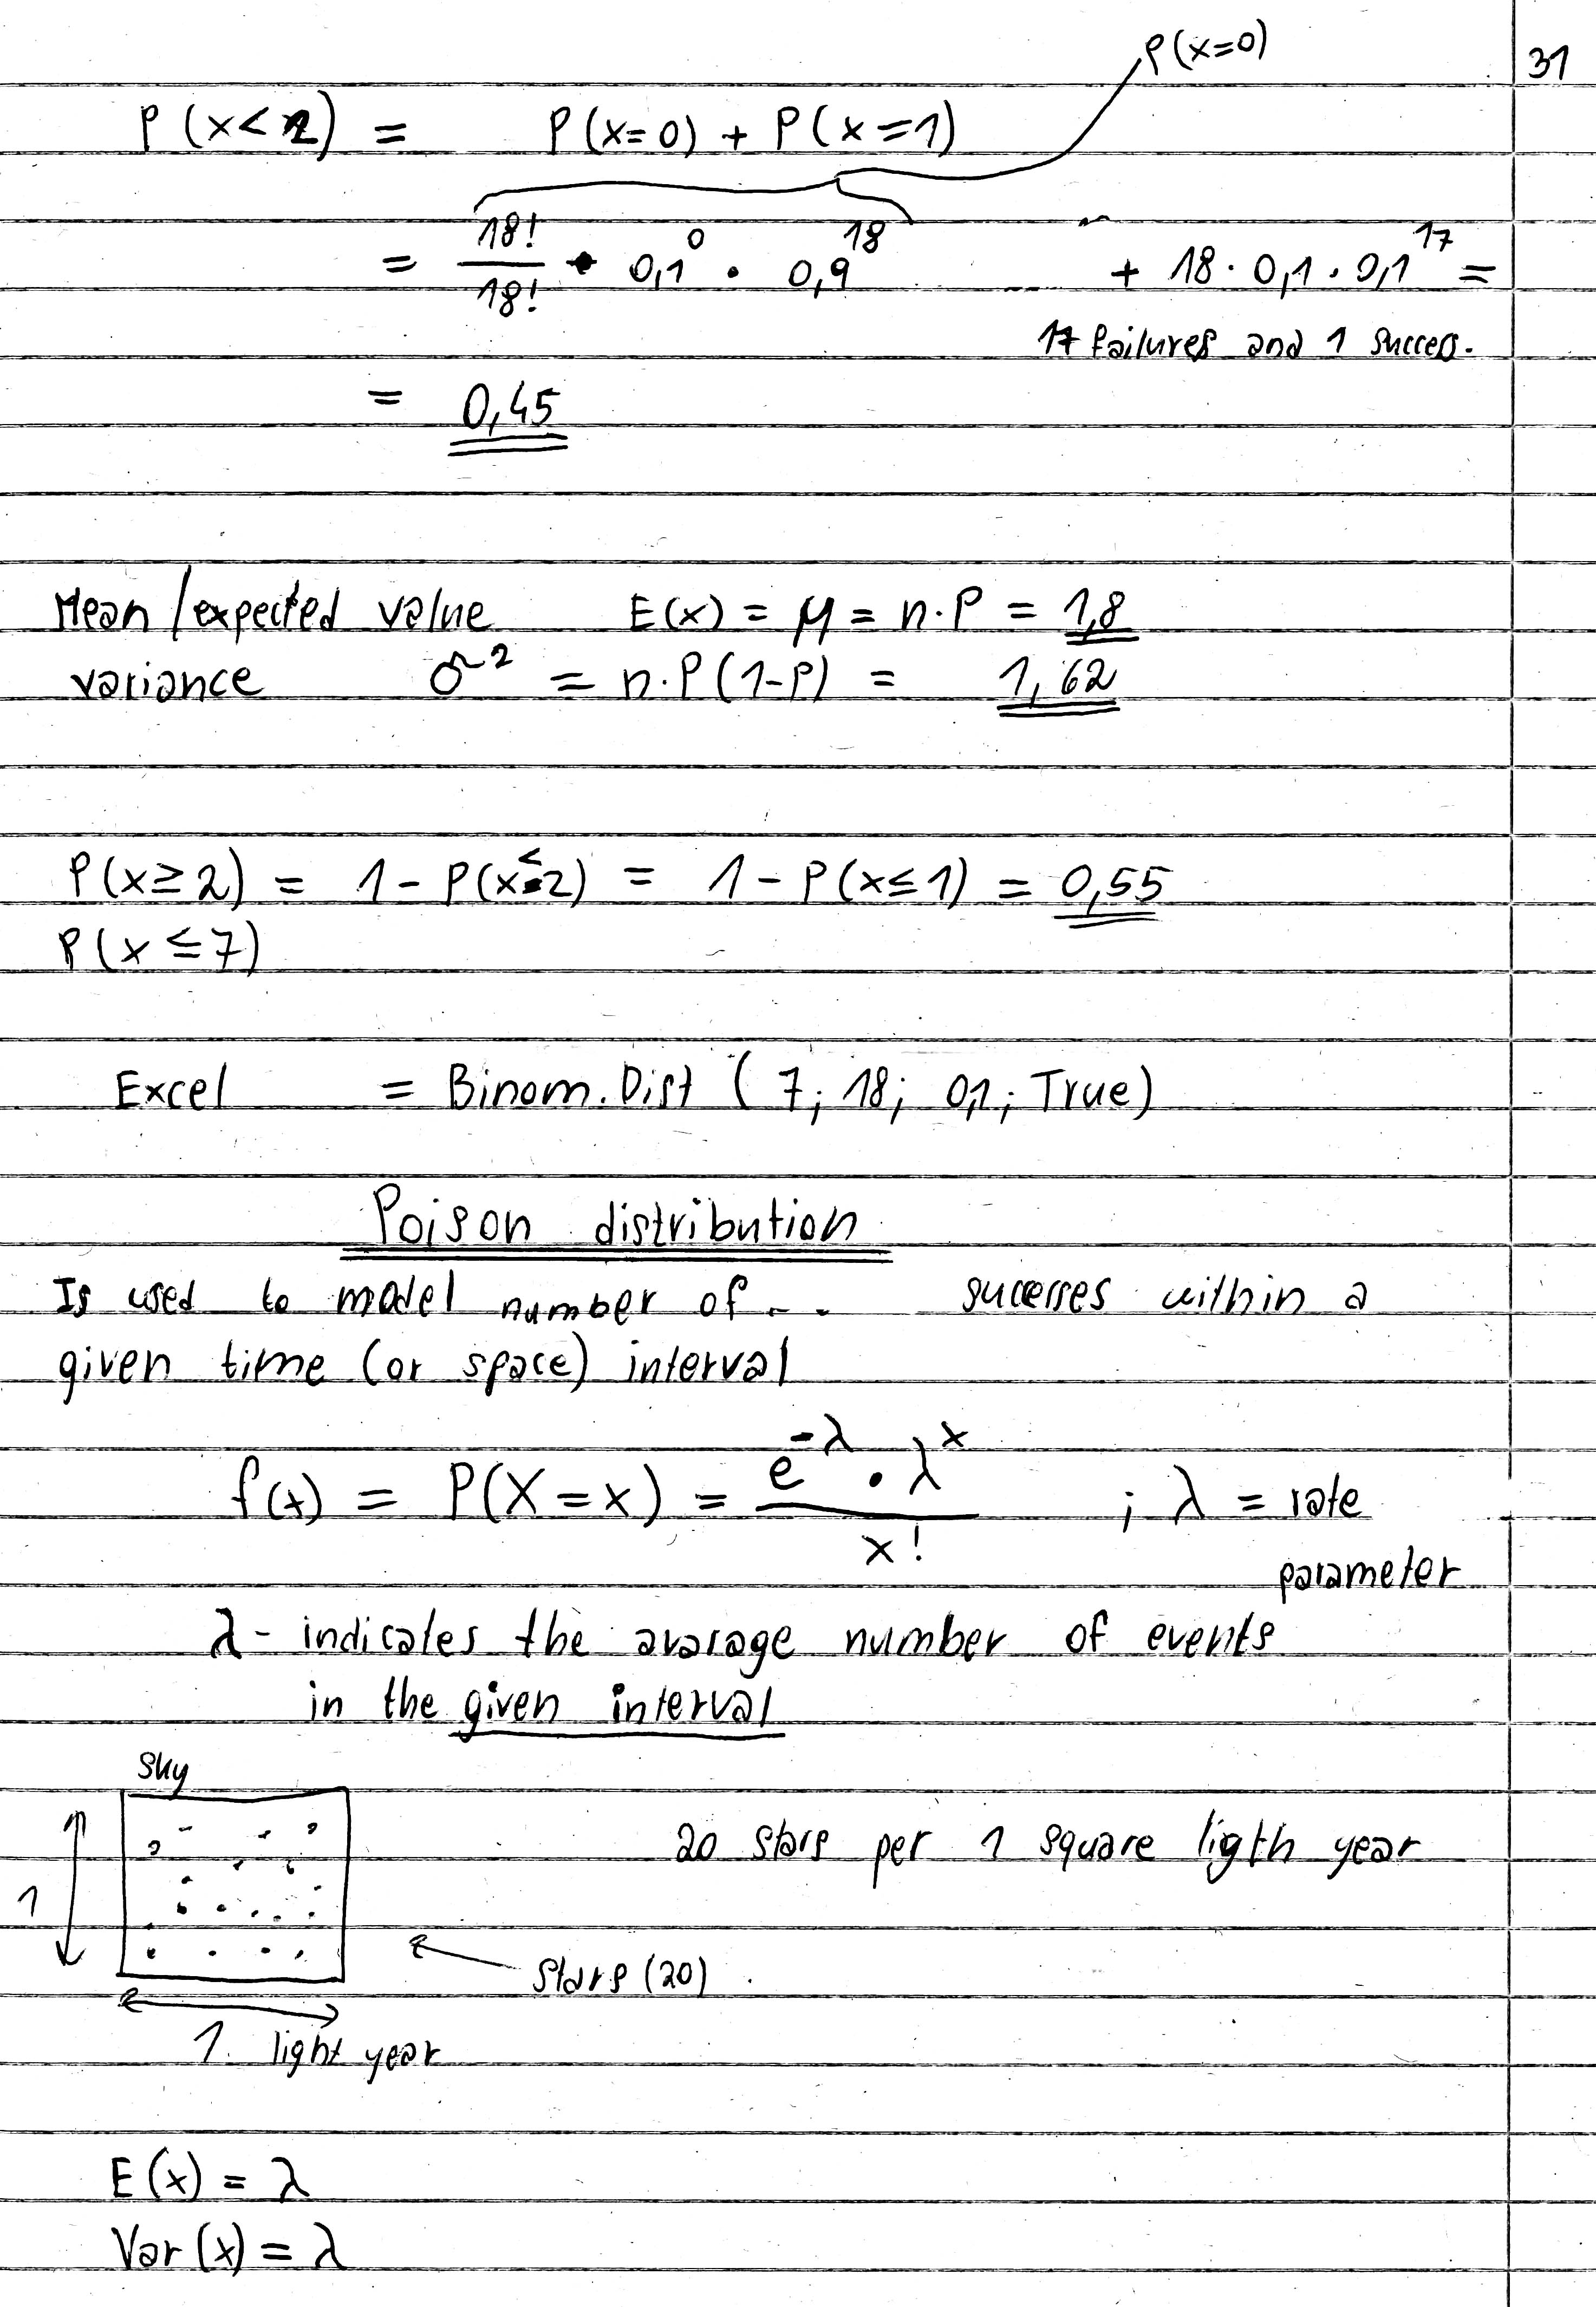 P(x=0)
31
P(x<2) = P(x=0) + P(x=1)
= 18!/18! • 0,1^0 • 0,9^18 + 18 · 0,1 · 0,1^17 =
17 failures and 1 success.
= 0,45
Mean/expected value E(x) = μ = n·P = 1,8
variance σ² = n·P(1-P) = 1,62
P(x≥2) = 1 - P(x<2) = 1 - P(x≤1) = 0,55
P(x≤7)
Excel = Binom.Dist (7; 18; 0,1; True)
Poison distribution
Is used to model number of .. successes within a
given time (or space) interval
f(x) = P(X=x) = e^-λ • λ^x / x! ; λ = rate
parameter
λ - indicates the avarage number of events
in the given interval
sky
20 stars per 1 square ligth year
1
stars (20)
1. light year
E(x) = λ
Var(x) = λ